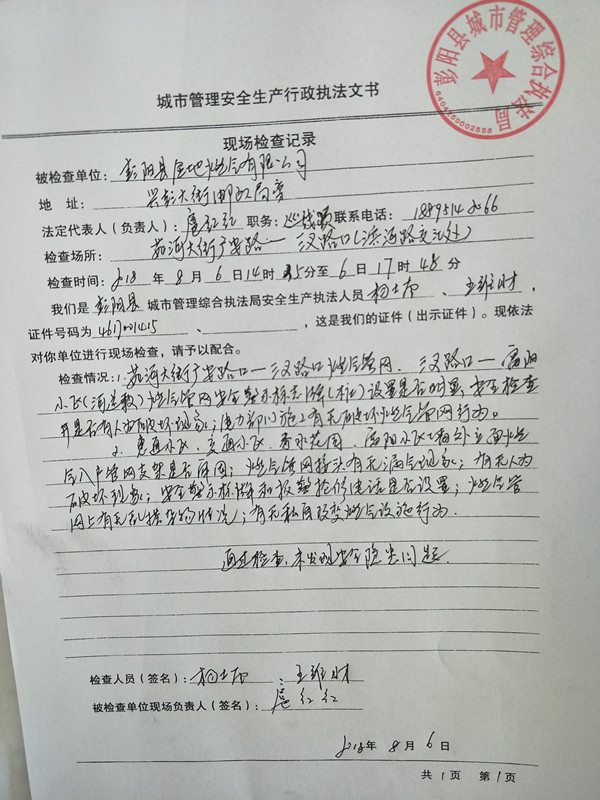 彭阳县城市管理综合执法局
6404250002558
城市管理安全生产行政执法文书
现场检查记录
被检查单位：彭阳县金地燃气有限公司
地 址：兴彭大街邮政局旁
法定代表人（负责人）：扈红红 职务：巡线员 联系电话：
检查场所：茹河大街产业路——三岔路口（滨河路交汇处）
检查时间：2018年8月6日14时35分至6日17时48分
我们是彭阳县城市管理综合执法局安全生产执法人员
证件号码为 、 ，这是我们的证件（出示证件）。现依法
对你单位进行现场检查，请予以配合。
检查情况：1.茹河大街产业路口——三岔路口燃气管网、三岔路口—
小区 燃气管网安全警示标志 设置是否明显，安全检查
并是否有人为破坏现象；电力部门施工有无破坏燃气管网行为。
2.惠通小区、交通小区、香水花园、 阳小区墙外立面燃
气入户管网支架是否牢固；燃气管网接头有无漏气现象；有无人为
破坏现象；安全警示标牌和报警抢修电话是否设置；燃气管
网上有无乱搭杂物情况；有无私自改变燃气设施行为。
通过检查，未发现安全隐患问题。
检查人员（签名）：
被检查单位现场负责人（签名）：扈红红
2018年8月6日
共1页 第1页